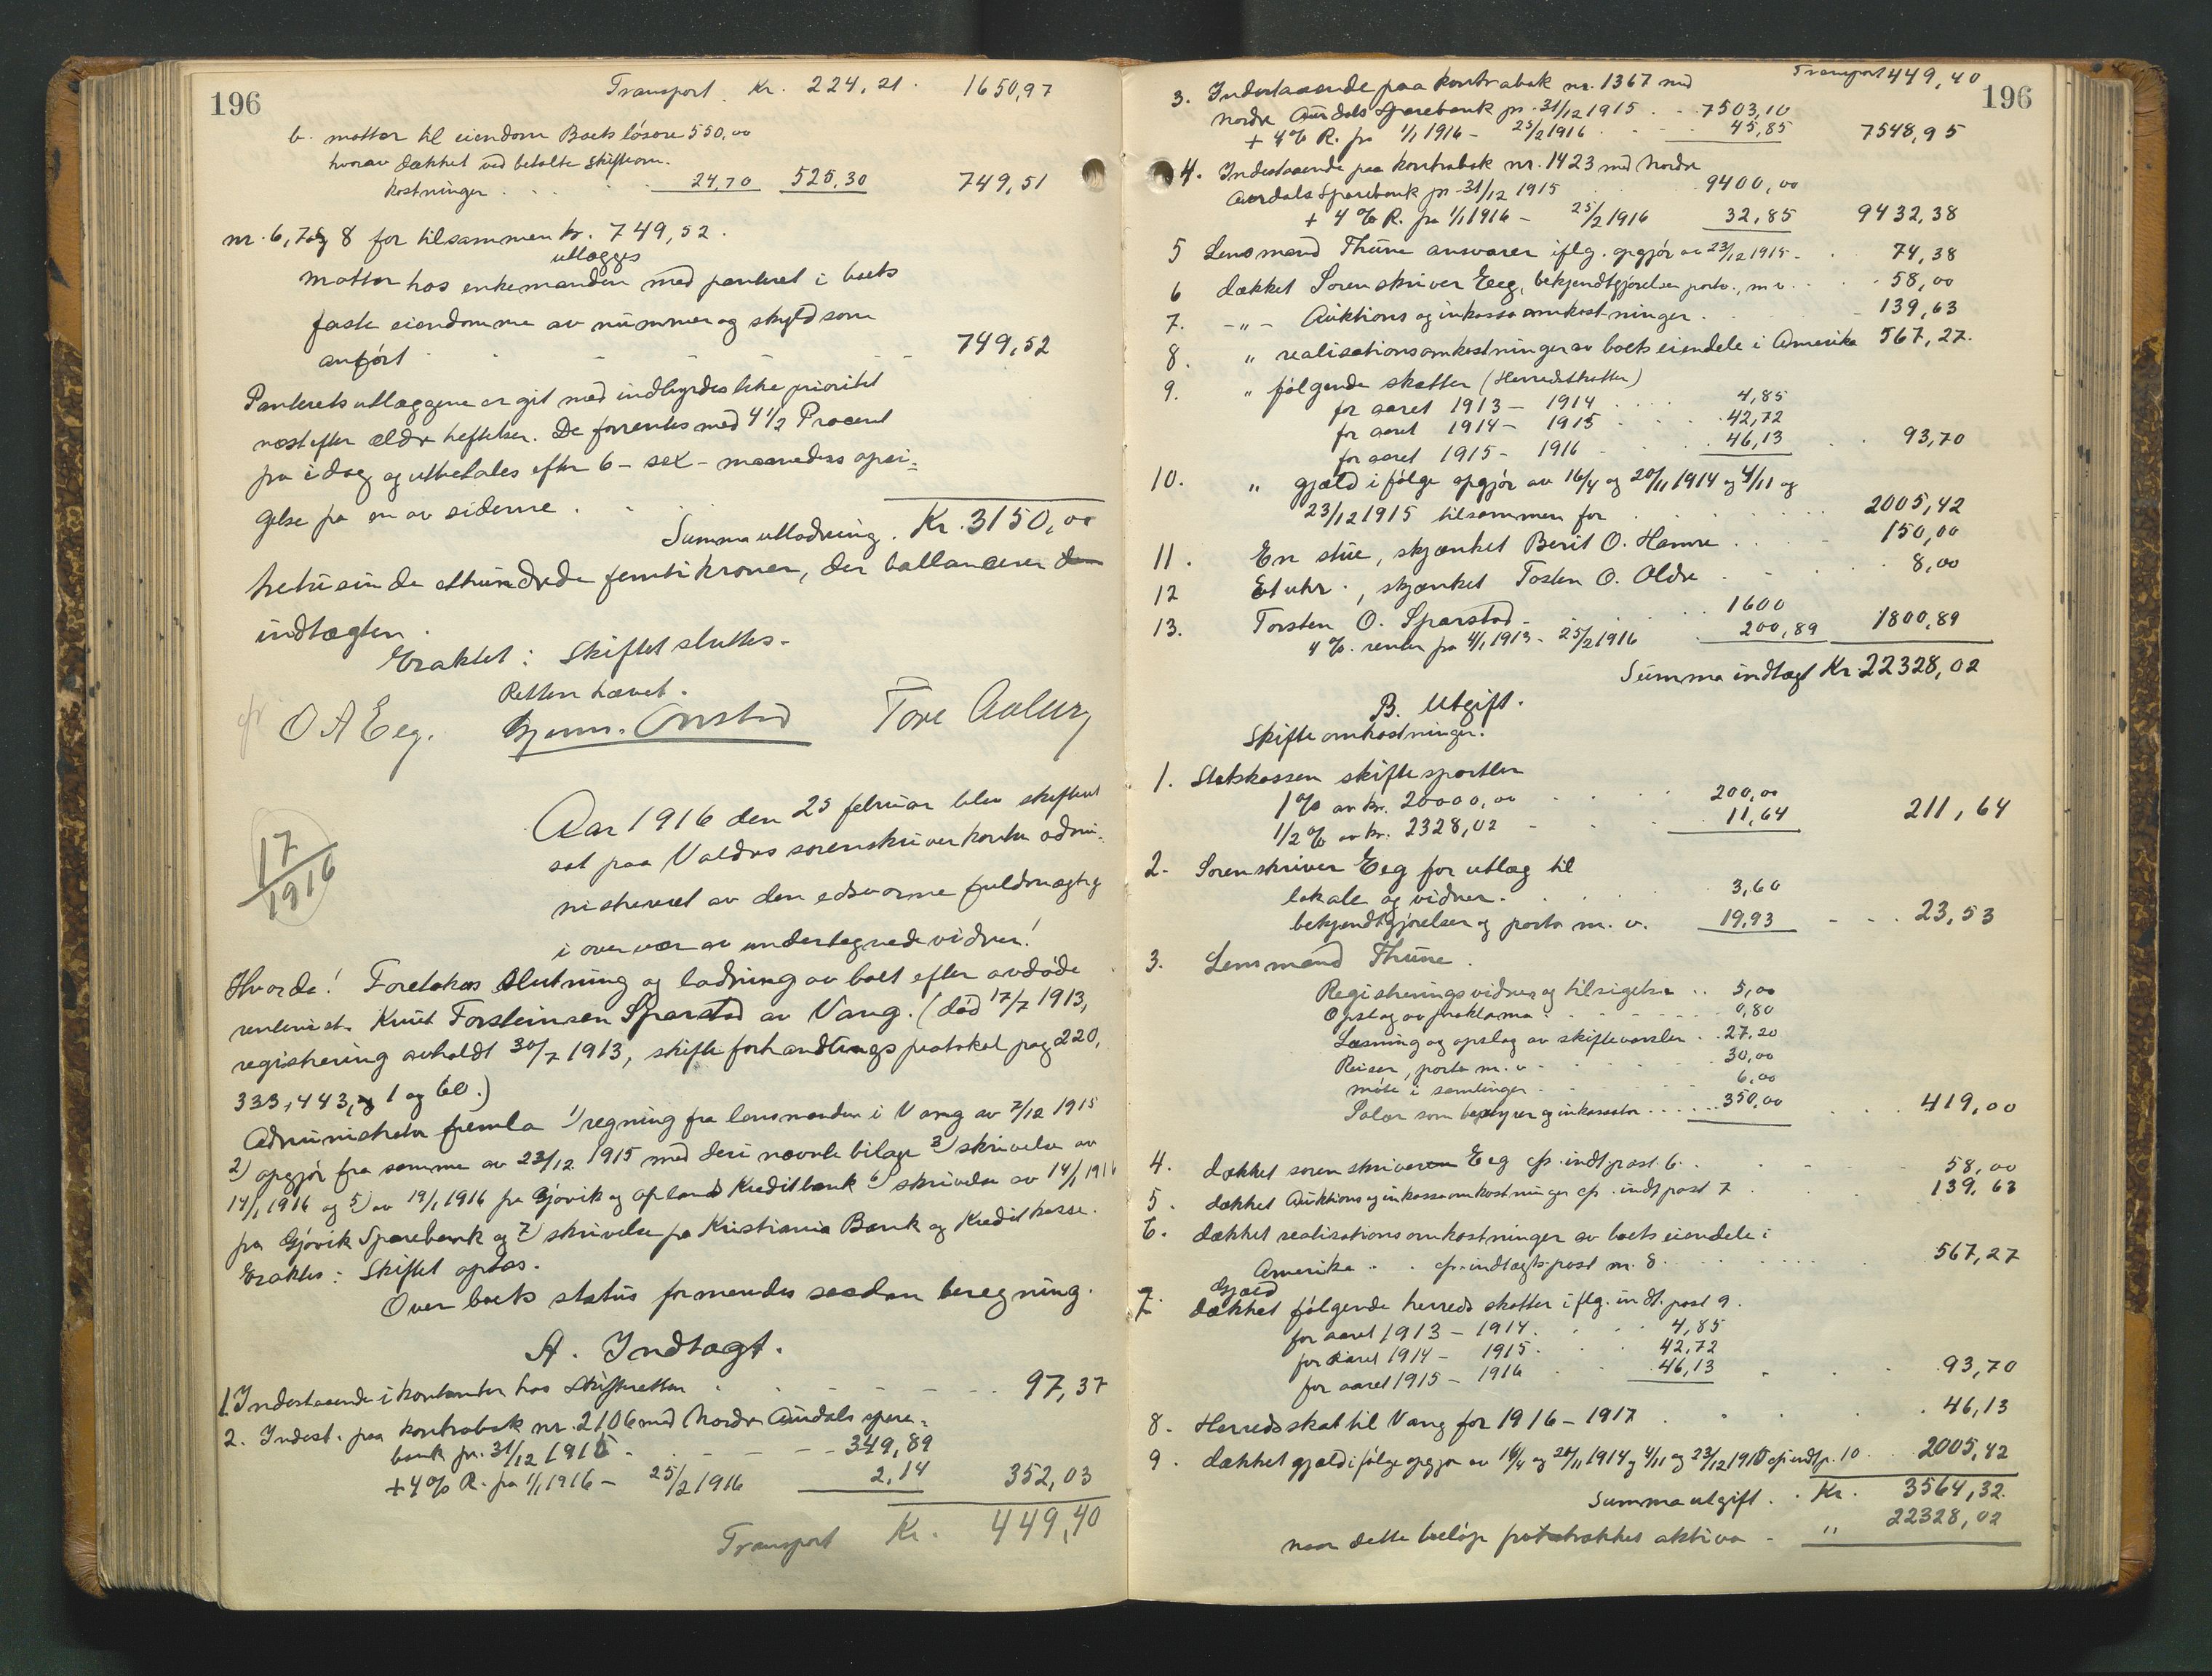 196
Transport. Kr. 224,21. 1650,97
b. mottar til eiendom Boets løsøre 550,00
hvorav dækket ved betalte skifteom.
kostninger . . . 24,70 525,30 749,51
nr. 6, 7 og 8 for tilsammen kr. 749,52.
utlægges
mottar hos enkemanden med panteret i boets
faste eiendomme av nummer og skyld som
anført . - - - - - 749,52
Panterets utlæggene er git med indbyrdes like prioritet
næst efter ældre heftelser. De forrentes med 4 1/2 Procent
fra idag og utbetales efter 6 - sex - maaneders opsi-
gelse fra en av siderne . . .
Summa utlodning. Kr. 3150,00
tretusinde ethundrede femti kroner, der ballancerer
indtægten.
Eraktet: Skiftet sluttes.
Retten hævet.
O A Eeg. Gjerm. Onstad Tore
17/1916
Aar 1916 den 25 februar blev skifteret
sat paa Valdres sorenskriverkontor admi-
nistreret av den edsvorne fuldmægtig
i overvær av undertegnede vidner!
Hvorda! Foretokes slutning og lodning av boet efter avdøde
rentenist Knut Torsteinsen Sparstad av Vang. (død 17/7 1913,
registrering avholdt 30/7 1913, skifteforhandlings protokol pag 220,
333, 443, 1 og 60.)
Administrator fremla 1) regning fra lensmanden i Vang av 7/12 1915
2) opgjør fra samme av 23/12 1915 med deri nævnte bilage 3) skrivelse av
14/1 1916 og 5) av 19/1 1916 fra Gjøvik og oplands Kreditbank 6) skrivelse av 14/1 1916
fra Gjøvik Sparebank og 7) skrivelse fra Kristiania Bank og Kreditkasse.
Eraktes: Skiftet optas.
Over boets status formendes saadan beregning.
A. Indtægt.
1. Indestaaende i kontanter hos Skifteretten . . - - - - 97,37
2. Indest. paa kontrabok nr. 2106 med Nordre Aurdals spare-
bank pr. 31/12 1915 - . - - - - 349,89
+ 4% R. fra 1/1 1916 - 25/2 1916 2,14 352,03
Transport Kr. 449,40
Transport 449,40
196
3. Indestaaende paa kontrabok nr. 1367 med
Nordre Aurdals Sparebank pr. 31/12 1915 . . 7503,10
+ 4% R. fra 1/1 1916 - 25/2 1916 . . 45,85 7548,95
4. Indestaaende paa kontrabok nr. 1423 med Nordre
Aurdals Sparebank pr. 31/12 1915 9400,00
+ 4% R. fra 1/1 1916 - 25/2 1916 32,85 9432,38
5 Lensmand Thune ansvarer iflg. opgjør av 23/12 1915 - . 74,38
6 dækket Sorenskriver Eeg, bekjendtgjørelser porto, m v. . . 58,00
7. - " - Auktions og inkasso omkostninger . 139,63
8. " realisationsomkostninger av boets eiendele i Amerika 567,27.
9. " følgende skatter (Herredskatter)
for aaret 1913 - 1914 . . . . 4,85
for aaret 1914 - 1915 . . . 42,72
for aaret 1915 - 1916 - . . 46,13 . . 93,70
10. " gjæld i følge opgjør av 16/4 og 20/11 1914 og 4/11 og
23/12 1915 tilsammen for . . . . . . 2005,42
11. En stue, skjænket Berit O. Hamre . . . - 150,00
12 Et uhr . , skjænket Tosten O. Oldre . - . . 8,00
13. Torsten O. Sparstad - . . 1600
4%. renter fra 4/1 1913 - 25/2 1916 . 200,89 1800,89
Summa indtægt Kr. 22328,02
B. Utgift.
Skifteomkostninger.
1. Statskassen skiftesportler
1% av kr. 20000,00 - . . . 200,00
1/2% av kr. 2328,02 - . - 11,64 211,64
2. Sorenskriver Eeg for utlæg til
lokale og vidner . . . . 3,60
bekjendtgjørelser og porto m. v. 19,93 - - . 23,53
3. Lensmand Thune .
Registreringsvidner og tilsigelse . . 5,00
Opslag av proklama . . . . . 0,80
Læsning og opslag av skiftevarsler . . 27,20
Reiser, porto m. v. . . . . 30,00
møte i samlinger . . . . 6,00
Salær som bestyrer og inkassator . . . . . . 350,00 . . . 419,00
4. dækket sorenskriveren Eeg cfr. indt.post. 6. . . - - - 58,00
5. dækket Auktions og inkassoomkostninger cfr. indt post 7 . . . 139,63
6. dækket realisationsomkostninger av boets eiendele i
Amerika . . cfr. indtægtspost nr. 8 . . . . . . 567,27
Gjæld
7. dækket følgende herreds skatter iflg. indt. post 9.
for aaret 1913 - 1914. . . . 4,85
for aaret 1914 - 1915. . . 42,72
for aaret 1915 - 1916 . . 46,13 - - . 93,70
8. Herredsskat til Vang for 1916 - 1917 . . . . . 46,13
9. dækket gjæld i følge opgjør av 16/4 og 20/11 1914 og 4/11 og 23/12 1915 cfr indtp. 10 . . 2005,42
Summa utgift. . Kr. 3564,32.
naar dette beløp fratrækkes aktiva - " 22328,02